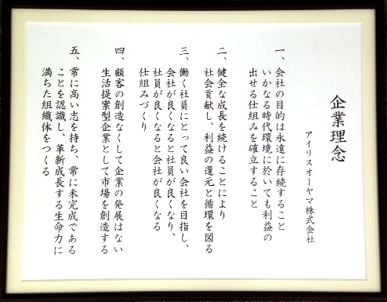 企業理念
アイリスオーヤマ株式会社
一、会社の目的は永遠に存続すること
いかなる時代環境に於いても利益の
出せる仕組みを確立すること
二、健全な成長を続けることにより
社会貢献し、利益の還元と循環を図る
三、働く社員にとって良い会社を目指し、
会社が良くなると社員が良くなり、
社員が良くなると会社が良くなる
仕組みづくり
四、顧客の創造なくして企業の発展はない
生活提案型企業として市場を創造する
五、常に高い志を持ち、常に未完成である
ことを認識し、革新成長する生命力に
満ちた組織体をつくる